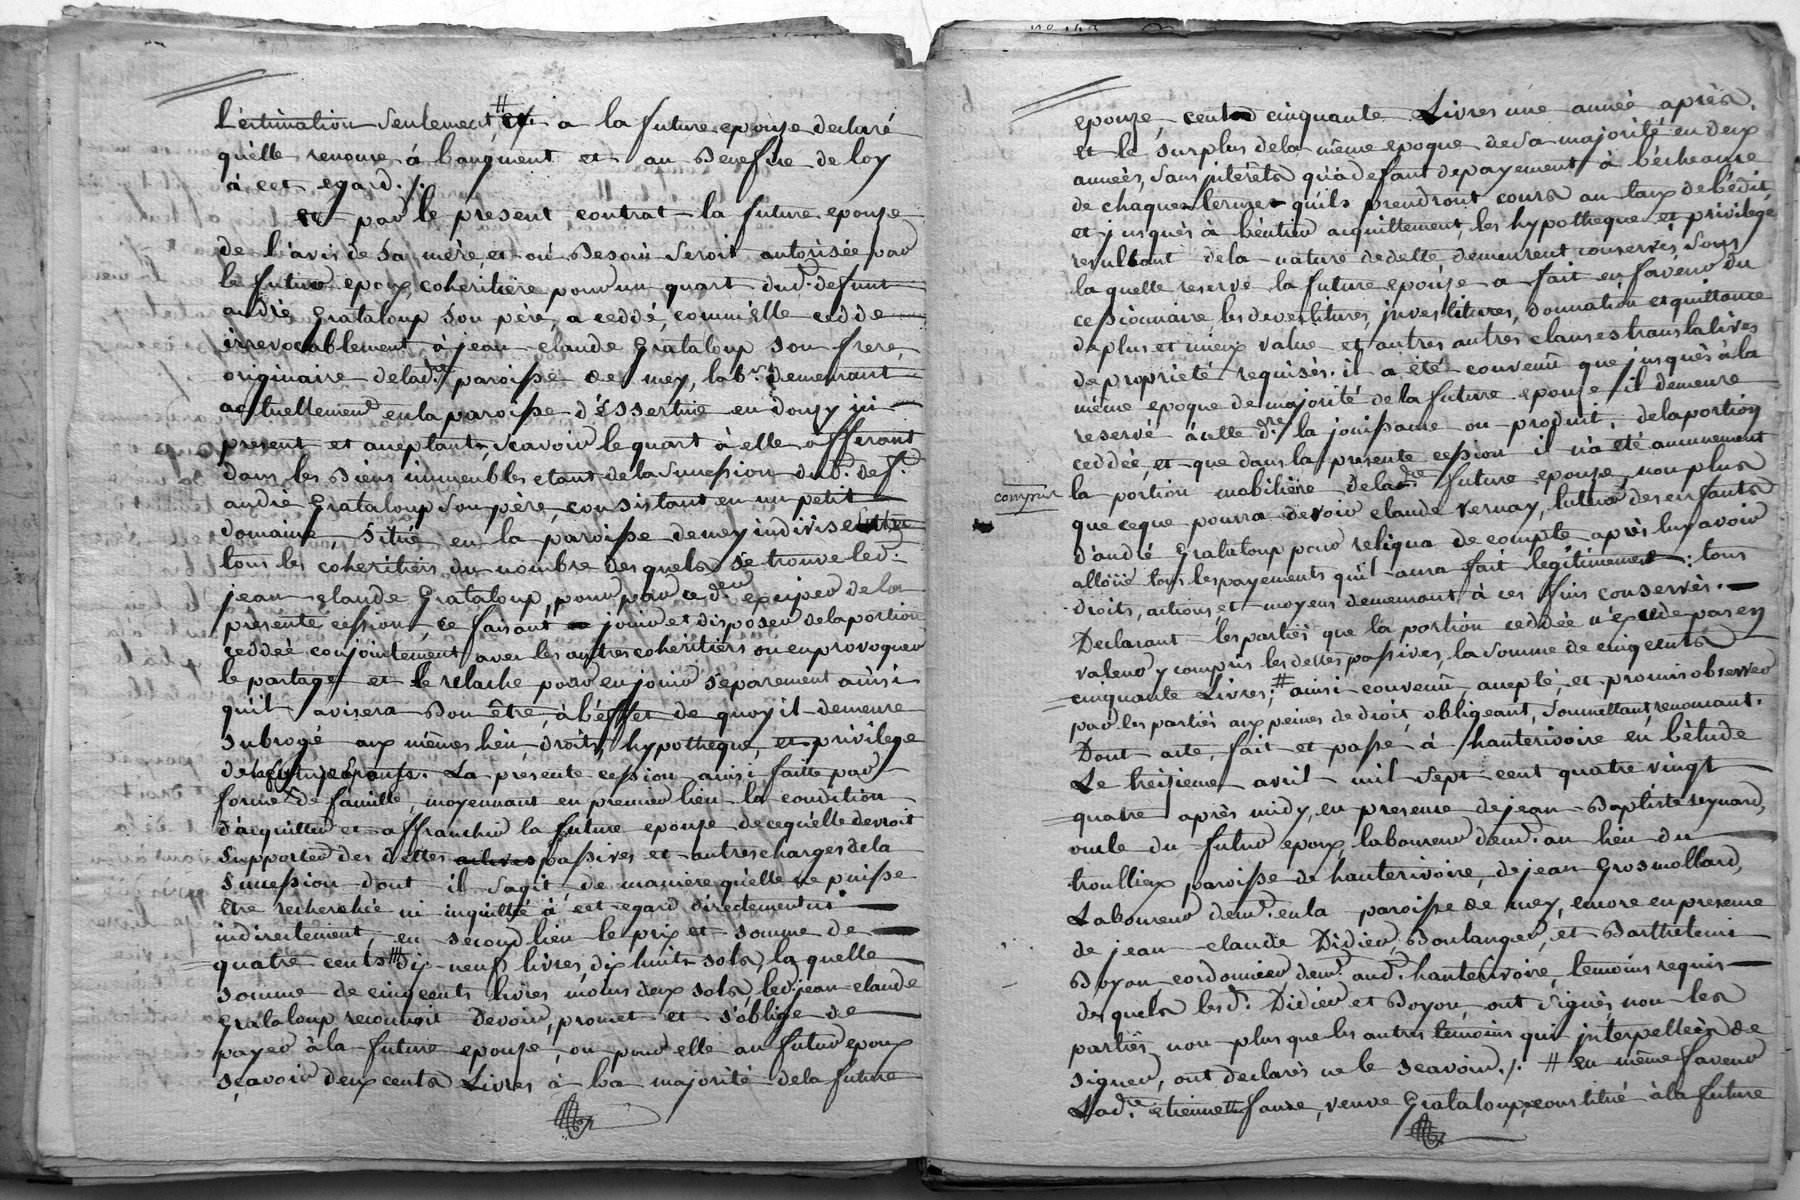 L'estimation seulement, # et a la future epouze declaré
qu'elle renonce à l'augment et au Benefice de loy
à cet egard ./.
et par le present contrat la future epouze
de l'avis de sa mère, et où Besoin seroit autorisée par
le futur epoux, coheritière pour un quart dud. defunt
andré Grataloup son père, a ceddé, comm'elle cedde
irrevocablement à jean claude Grataloup son frere,
originaire de lad. paroisse de mey, lab.r demeurant
actuellement en la paroisse d'Essertine en donzy ici
present et acceptant, scavoir le quart à elle afferant
dans les Biens immeubles etant de la succession dud. def.t
andré Grataloup son père, consistant en un petit
domaine, situé en la paroisse de mey indivise entre
tous les coheritiers du nombre desquels se trouve led.
jean claude Grataloup, pour par ce d.er exciper de la
presente cession, ce faisant jouir et disposer de la portion
ceddée conjointement avec les autres coheritiers ou en provoquer
le partage et le relache pour en jouir separement ainsi
qu'il avisera Bon être, à l'effet de quoy il demeure
subrogé aux mêmes lieu droits, hypotheque, et privilege
de la future Epouse. La presente cession ainsi faitte par
forme de famille, moyennant en premier lieu la condition
d'acquitter et affranchir la future epouze de ce qu'elle devroit
supporter des dettes actives passives et autres charges de la
succession dont il s'agit de manière qu'elle ne puisse
être recherchée ni inquiettée à cet egard directement ni
indirectement, en second lieu le prix et somme de
quatre cents # dix neuf livres, dix huit sols, la quelle
somme de cinq cents livres moins deux sols, led. jean claude
Grataloup reconnoit devoir, promet et s'oblige de
payer à la future epouze, ou pour elle au futur epoux
sçavoir deux cents Livres à la majorité de la future
epouze, cent cinquante Livres une année après,
et le surplus de la même epoque de sa majorité en deux
années, sans interêts qu'à defaut de payement à l'écheance
de chaques termes qu'ils prendront cours au taux de l'édit,
et jusqu'à l'éntier acquittement, les hypotheque et privilege
resultant de la nature de dette demeurent conservés, sous
la quelle reserve la future epouze a fait en faveur du
cessionnaire les devestitures, investitures, donnation et quittance
de plus et mieux value et autres autres clauses translatives
de proprieté requises. il a été convenû que jusqu'à la
même epoque de majorité de la future epouze il demeure
reservé à cette d.re la jouissance ou produit, de la portion
ceddée, et que dans la presente cession il n'a été aucunement
compris
la portion mobilière de lad. future epouze, non plus
que ce que pourra devoir claude Vernay, tuteur des enfants
d'andré Grataloup pour reliqua de compte après luy avoir
alloüé tous les payements qu'il aura fait legitimement : tous
droits, actions, et moyens demeurant à ces fins conservés.
Declarant les parties que la portion ceddée n'éxcede pas en
valeur y compris les dettes passives, la somme de cinq cents
cinquante Livres; # ainsi convenû, accepté, et promis observer
par les parties aux peines de droit, obligeant, soumettant, renonçant.
Dont acte, fait et passé, à hauterivoire en l'étude
Le treizieme avril mil sept cent quatre vingt
quatre après midy, en presence de jean Baptiste reynard,
oncle du futur epoux, laboureur dem.t au lieu du
troullieux paroisse de hauterivoire, de jean Grosmollard,
Laboureur dem.t en la paroisse de mey, encore en presence
de jean claude Didier, Boulanger, et Barthelemi
Boyon cordonnier dem.t aud. hauterivoire, temoins requis
desquels lesd. Didier et Boyon, ont signés, non les
parties non plus que les autres temoins qui interpellés de
signer, ont declarés ne le scavoir ./. # en même faveur
Lad.e Etiennette faure, veuve Grataloup, constitué à la future